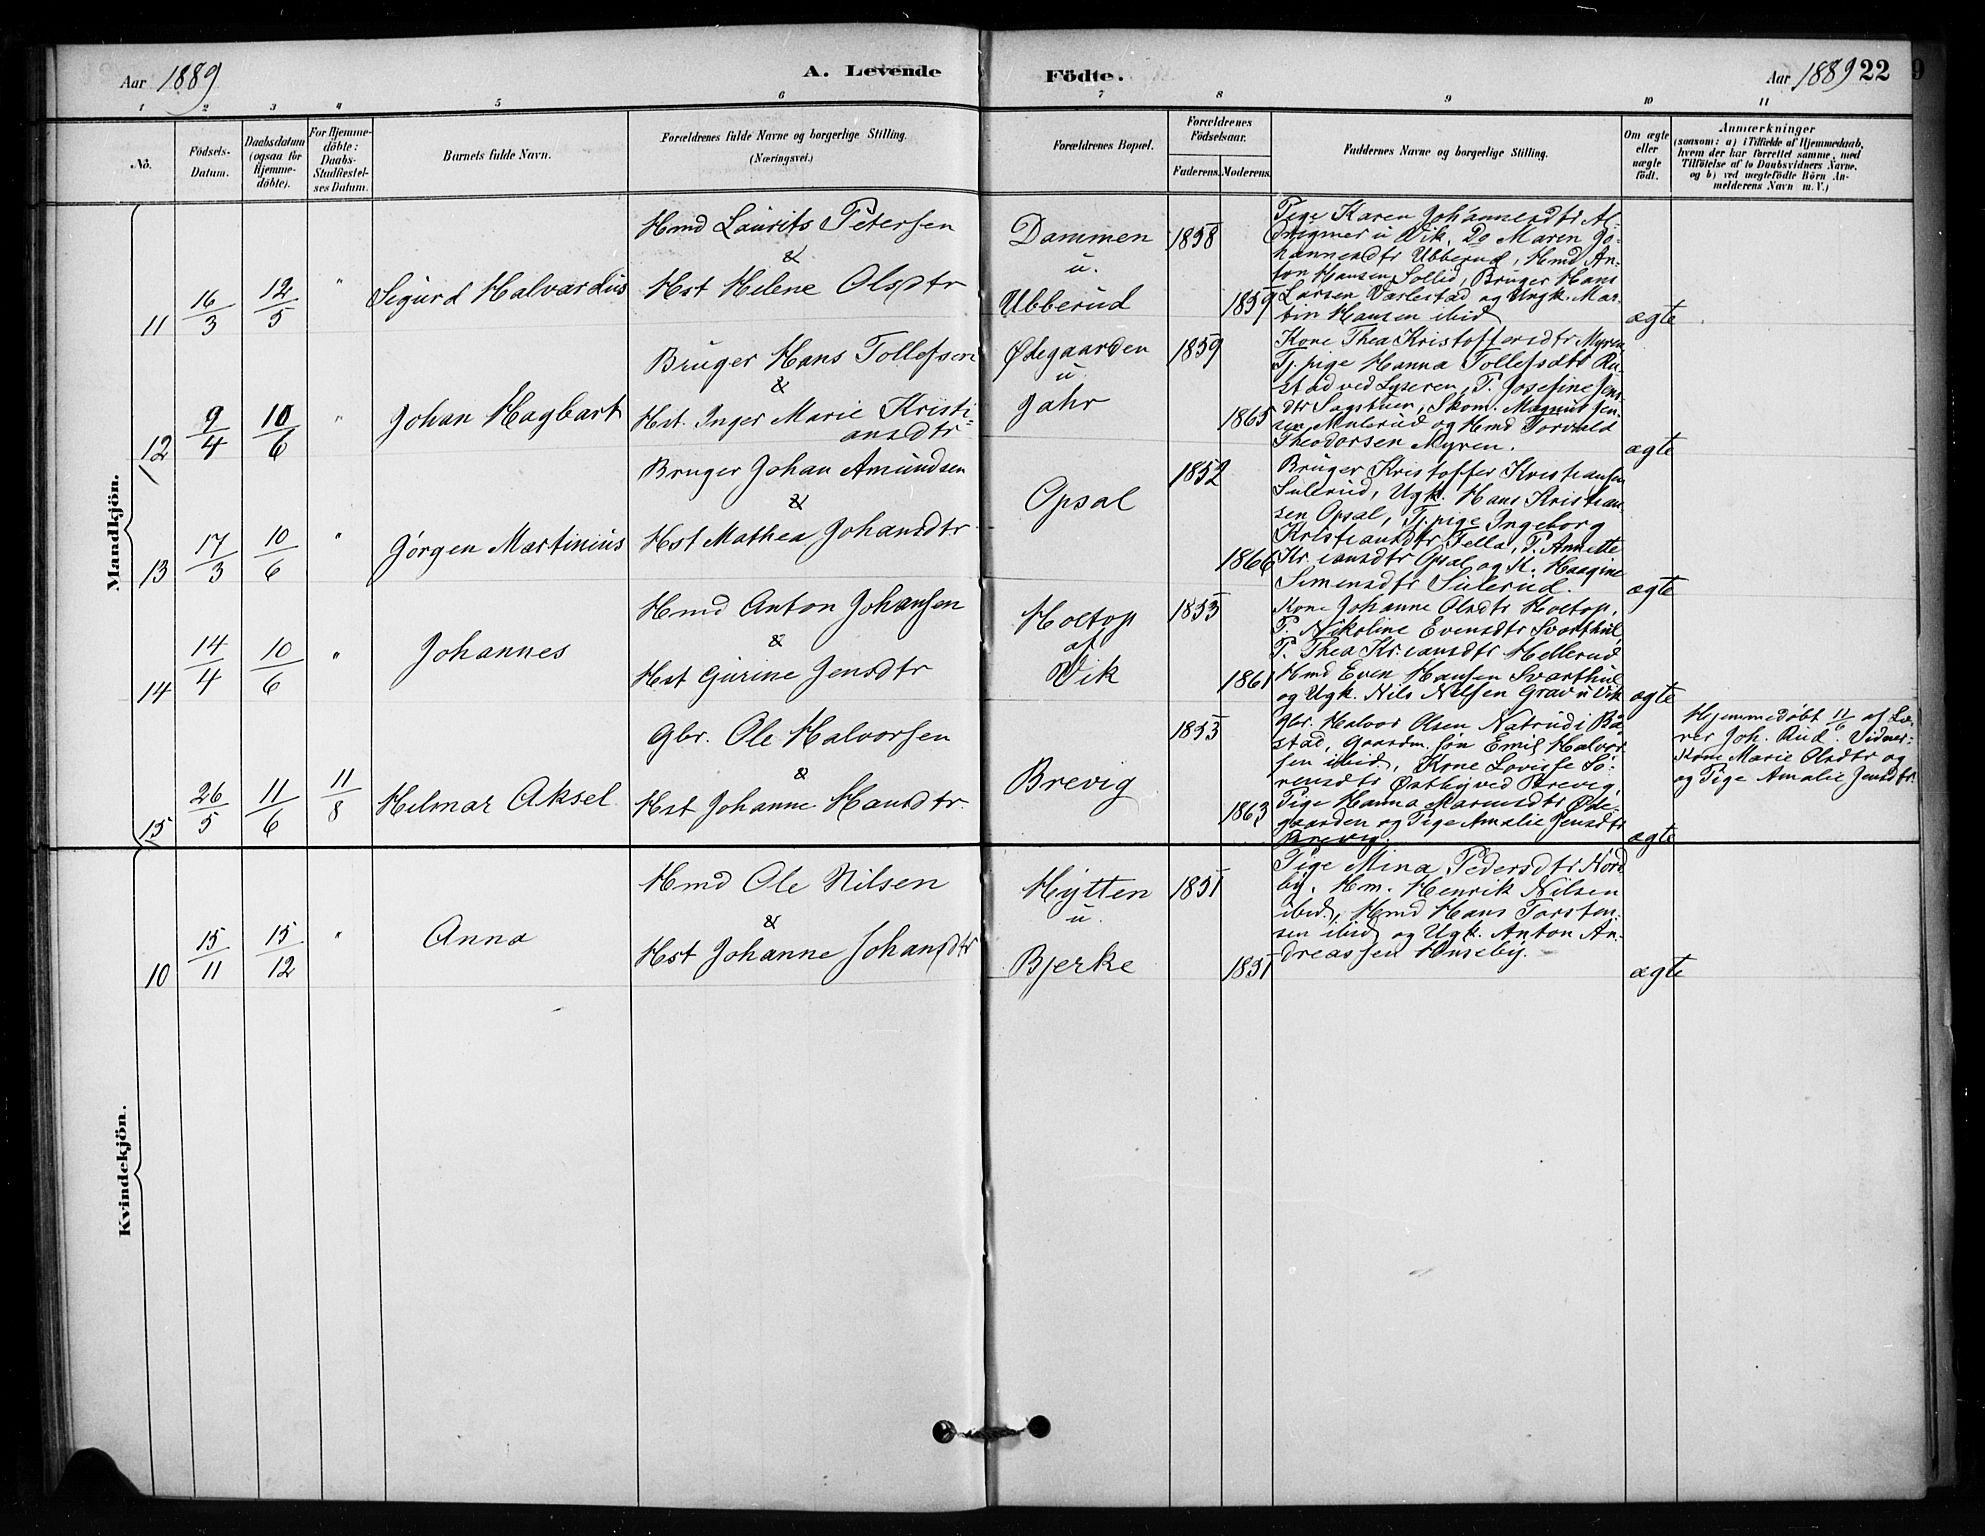 Aar 1889
A. Levende
Födte.
Aar 1889
22
9
1
2
3
4
5
6
7
8
9
10
11
No.
Födsels-
Datum.
Daabsdatum
(ogsaa för
Hjemme-
döbte).
For Hjemme-
döbte:
Daabs-
Stadfæstel-
ses Datum.
Barnets fulde Navn.
Forældrenes fulde Navne og borgerlige Stilling.
(Næringsvei.)
Forældrenes Bopæl.
Forældrenes
Födselsaar.
Faderens.
Moderens.
Faddernes Navne og borgerlige Stilling.
Om ægte
eller
uægte
födt.
Anmærkninger
(saasom: a) i Tilfælde af Hjemmedaab,
hvem der har forrettet samme, med
Tilföielse af to Daabsvidners Navne,
og b) ved uægtefödte Börn An-
melderens Navn m. V.)
Mandkjön.
11
16/3
12/5
"
Sigurd Halvardus
Hmd Laurits Petersen
&
Hst Helene Olsdtr
Dammen
u.
Ubberud
1858
1859
Pige Karen Johannesdtr
u Vik, Do Maren Jo-
hannesdtr Ubberud, Hmd An-
ton Hansen Sollid, Bruger Hans
Larsen Varlestad og Ungk. Mar-
tin Hansen ibid
ægte
12
9/4
10/6
"
Johan Hagbart
Bruger Hans Tollefsen
&
Hst. Inger Marie Kristi-
ansdtr
Ødegaarden
u.
Jahr
1859
1865
Kone Thea Kristoffersdtr Myren
Tj. pige Hanna Tollefsdtr Ru-
stad ved Lyseren, P. Josefine Jens-
dtr Sagstuen, Skom. Magnus Jen-
sen Mulerud og Hmd Torvald
Theodorsen Myren.
ægte
13
17/3
10/6
"
Jørgen Martinius
Bruger Johan Amundsen
&
Hst Mathea Johansdtr
Opsal
1852
1866
Bruger Kristoffer Kristiansen
Sulerud, Ugk. Hans Kristian-
sen Opsal, Tj. pige Ingeborg
Kristiansdtr Fella, P. Annette
Kr. iansdtr Opsal og K. Haagine
Simensdtr Sulerud.
ægte
14
14/4
10/6
"
Johannes
Hmd Anton Johansen
&
Hst Gurine Jensdtr
Holtop
af
Vik
1853
1861
Kone Johanne Olsdtr Holtop,
P. Nikoline Evensdtr Svarthul,
P. Thea Kr. iansdtr Hellerud
Hmd Even Hansen Svarthul
og Ugk. Nils Nilsen Grav u Vik
ægte
15
26/5
11/6
11/8
Hilmar Aksel
Gbr. Ole Halvorsen
&
Hst Johanne Hansdtr
Brevig
1853
1863
Gbr. Halvor Olsen Natrud i Bå-
stad, Gaardm. søn Emil Halvor-
sen ibid., Kone Lovisse Sö-
rensdtr Østby ved Brevig,
Pige Hanna Mariusdtr Øde-
gaarden og Pige Amalie Jensdtr
Brevig.
ægte
Hjemmedøbt 11/6 af Læ-
rer Joh. Rud. Vidner:
Kone Marie Olsdtr og
og Pige Amalie Jensdtr.
Kvindekjön.
10
15/11
15/12
"
Anna
Hmd Ole Nilsen
&
Hst Johanne Johansdtr
Hytten
u.
Bjerke
1851
1851
Pige Mina Pedersdtr Nord-
by, Hm. Henrik Nilsen
ibid., Hmd Hans Torsten-
sen ibid og Ugk. Anton An-
dreassen Huseby.
ægte